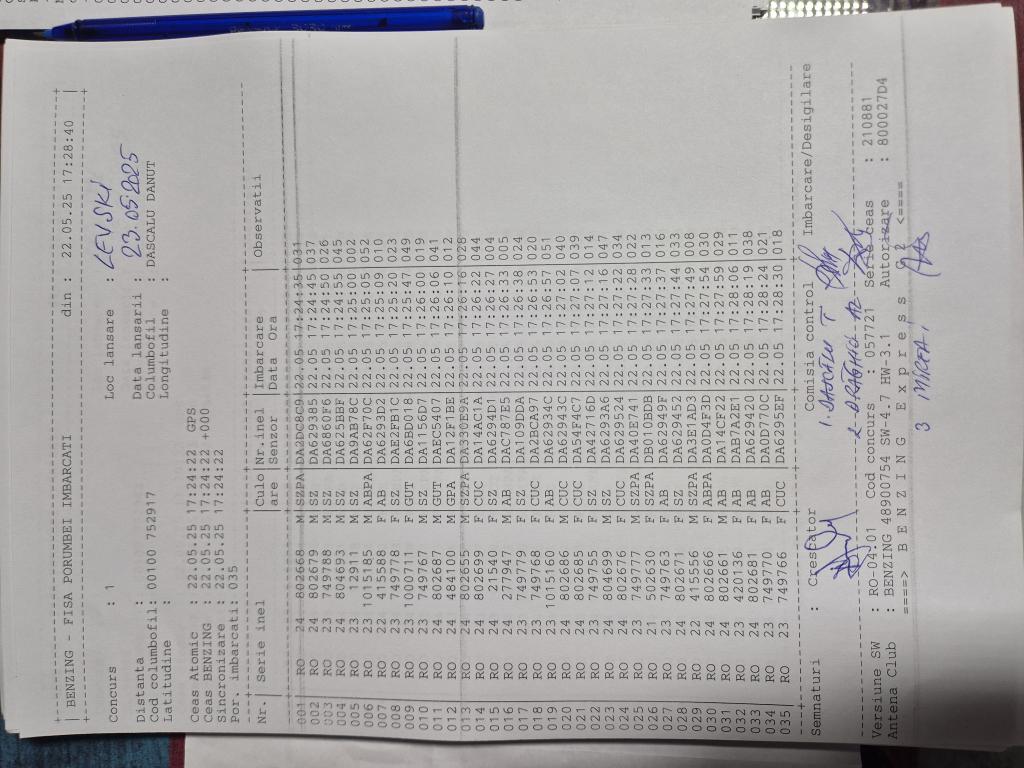 | BENZING - FISA PORUMBEI IMBARCATI din : 22.05.25 17:28:40 |
Concurs : 1 Loc lansare : LEVSKI
Distanta : Data lansarii : 23.05.2025
Cod columbofil: 00100 752917 Columbofil : DASCALU DANUT
Latitudine : Longitudine :
Ceas Atomic : 22.05.25 17:24:22 GPS
Ceas BENZING : 22.05.25 17:24:22 +000
Sincronizare : 22.05.25 17:24:22
Por. imbarcati: 035
Nr.| Serie inel |Culo|Nr.inel |Imbarcare | Observatii
are |Senzor |Data Ora
001 RO 24 802668 M SZPA DA2DC8C9 22.05 17:24:35 031
002 RO 24 802679 M SZ DA629385 22.05 17:24:45 037
003 RO 23 749788 M SZ DA6860F6 22.05 17:24:50 026
004 RO 24 804693 M SZ DA625BBF 22.05 17:24:55 045
005 RO 23 12911 M SZ DA9AB78C 22.05 17:25:00 002
006 RO 23 1015185 M ABPA DA62F70C 22.05 17:25:05 052
007 RO 22 415588 F AB DA6293D2 22.05 17:25:09 010
008 RO 23 749778 F SZ DAE2FB1C 22.05 17:25:13 023
009 RO 23 1000711 F GUT DA6BD018 22.05 17:25:47 049
010 RO 23 749767 M SZ DA1156D7 22.05 17:26:00 019
011 RO 24 802687 M GUT DAEC5407 22.05 17:26:06 041
012 RO 22 484100 M GPA DA12F1BE 22.05 17:26:10 012
013 RO 24 802655 M SZPA DA330E9A 22.05 17:26:16 028
014 RO 24 802699 F CUC DA14AC1A 22.05 17:26:22 044
015 RO 24 21540 F SZ DA6294D1 22.05 17:26:27 004
016 RO 24 277947 M AB DAC787E5 22.05 17:26:33 005
017 RO 23 749779 F SZ DA109DDA 22.05 17:26:38 024
018 RO 23 749768 F CUC DA2BCA97 22.05 17:26:53 020
019 RO 23 1015160 F AB DA62934C 22.05 17:26:57 051
020 RO 24 802686 M CUC DA62943C 22.05 17:27:02 040
021 RO 24 802685 F CUC DA54F4C7 22.05 17:27:07 039
022 RO 23 749755 F SZ DA42716D 22.05 17:27:12 014
023 RO 24 804699 M SZ DA6293A6 22.05 17:27:16 047
024 RO 24 802676 F CUC DA629524 22.05 17:27:22 034
025 RO 23 749777 M SZ DA40E741 22.05 17:27:28 022
026 RO 21 502630 F SZPA DB010BDB 22.05 17:27:33 013
027 RO 23 749763 F AB DA62949F 22.05 17:27:37 016
028 RO 24 802671 F SZ DA629452 22.05 17:27:44 033
029 RO 22 415556 M SZPA DA3E1AD3 22.05 17:27:49 008
030 RO 24 802666 F ABPA DA0D4F3D 22.05 17:27:54 030
031 RO 24 802661 M AB DA14CF22 22.05 17:27:59 029
032 RO 22 420136 F AB DAB7A2E1 22.05 17:28:06 011
033 RO 24 802681 M AB DA629420 22.05 17:28:19 038
034 RO 23 749770 F AB DA0D770C 22.05 17:28:24 021
035| RO 23 749766 F CUC DA6295EF 22.05 17:28:30 018
Semnaturi : Crescator Comisia control Imbarcare/Desigilare
1.
2.
Versiune SW : RO-04.01 Cod concurs : 057721 Serie ceas : 210881
Antena Club : BENZING 48900754 SW-4.7 HW-3.1 Autorizare : 800027D4
====> B E N Z I N G E x p r e s s G 2 <====
3 MIREA I